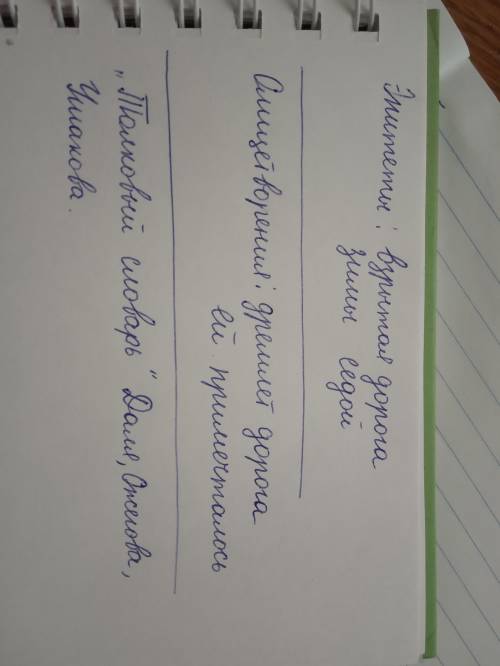 Эпитеты: взрытая дорога
зимы седой
Олицетворения: дремлет дорога
ей примечталось
„Толковый словарь" Даля, Ожегова,
Ушакова.